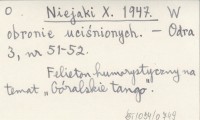 O. Niejaki X. 1947. W
obronie uciśnionych. – Odra
3, nr 51-52.
Felieton humorystyczny na
temat „Góralskie tango".